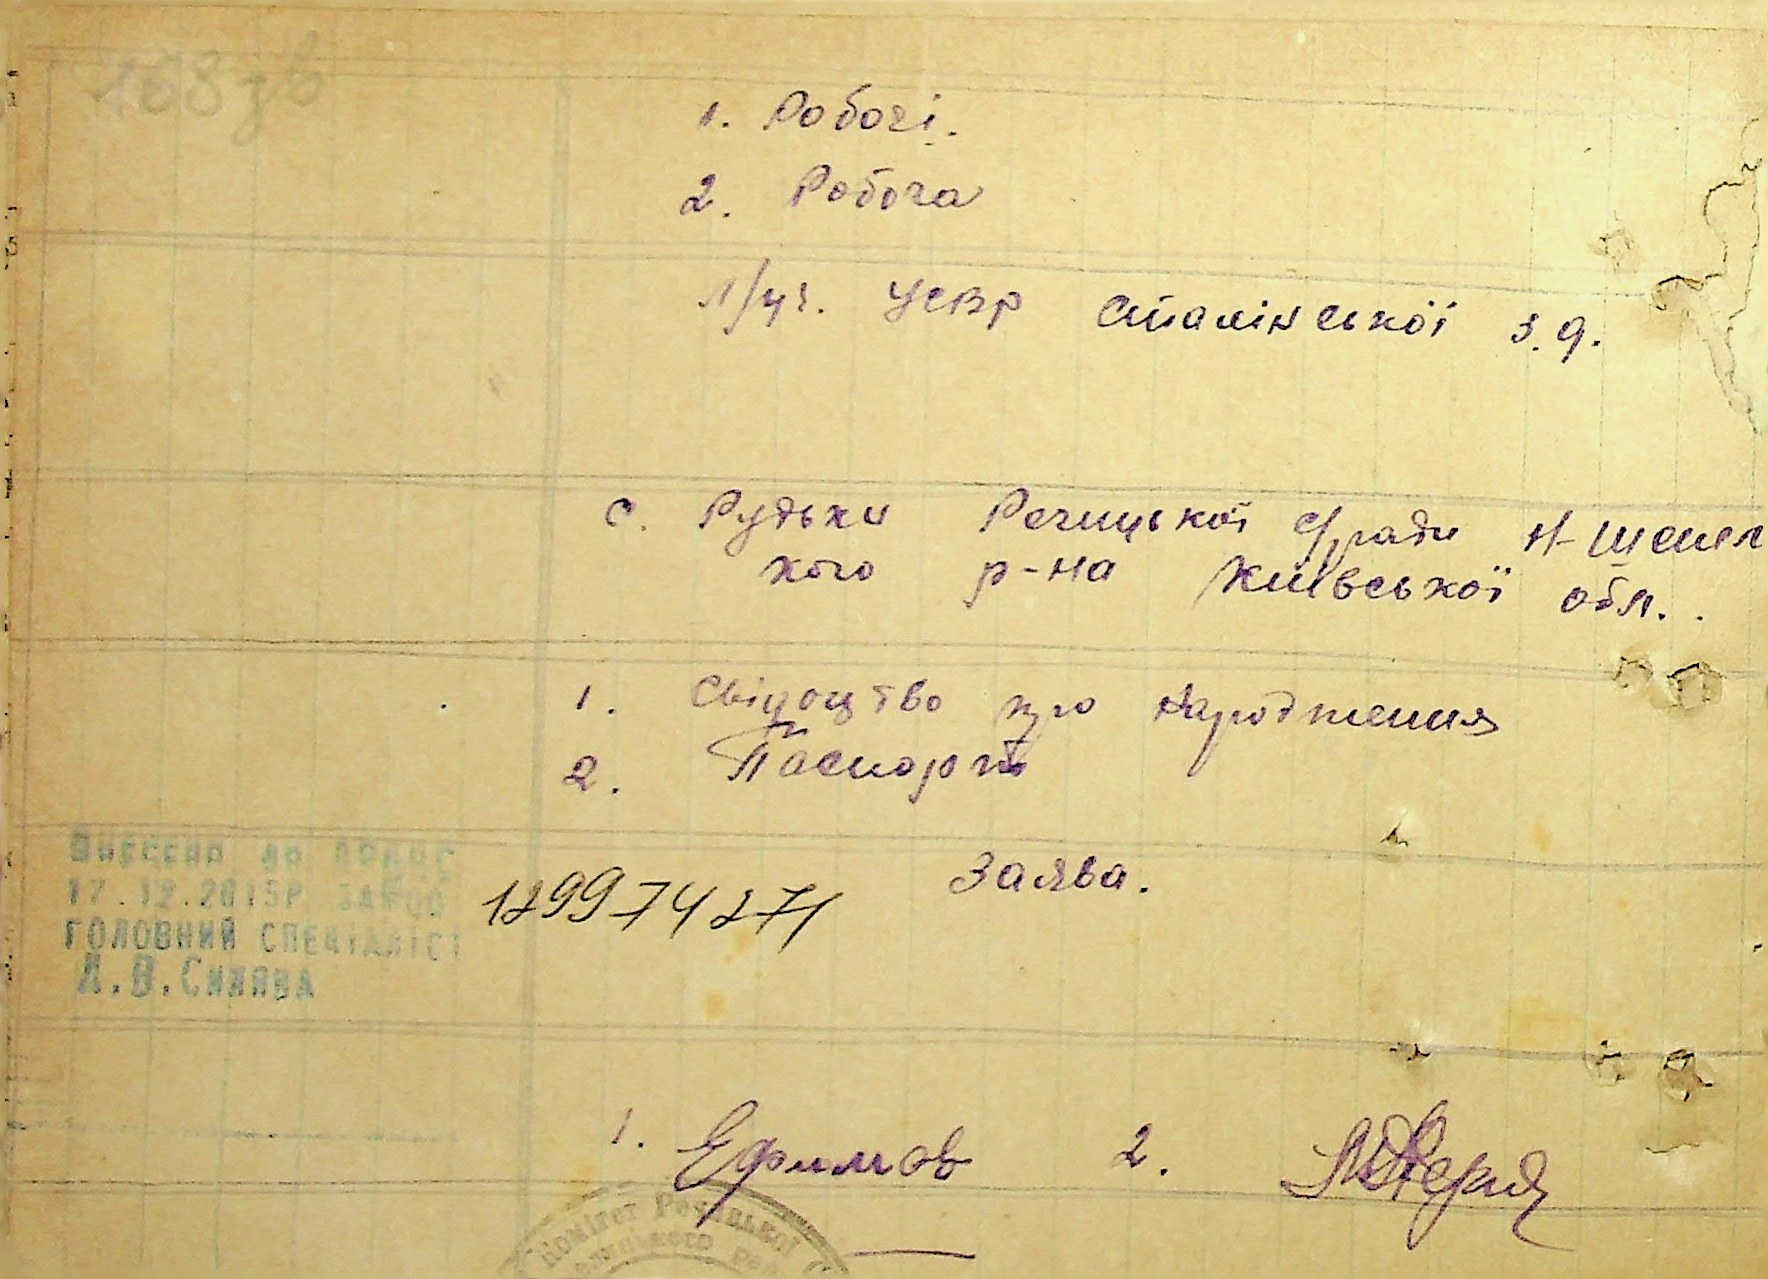 168 зв
1. Робочі.
2. Робоча
л/уч. УСВР Сталінської з.д.
с. Рудьки Речицької с/ради Н-Шепел
кого р-на Київської обл.
1. Свідоцтво про народження
2. Паспорт
Заява.
Внесено до
17.12.2015р.
ГОЛОВНИЙ СПЕЦІАЛІСТ
129974271
1. Ефимов 2.
комітет Речицької